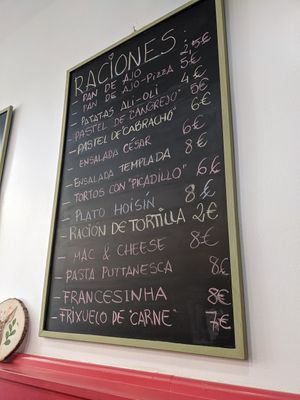 RACIONES:
- PAN DE AJO 2,5€
- PAN DE AJO-PIZZA 5€
- PATATAS ALI-OLI 4€
- PASTEL DE "CANGREJO" 5€
- PASTEL DE "CABRACHO" 6€
- ENSALADA CÉSAR 6€
- ENSALADA TEMPLADA 8€
- TORTOS CON "PICADILLO" 6€
- PLATO HOISIN 8€
- RACIÓN DE TORTILLA 2€
- MAC & CHEESE 8€
- PASTA PUTTANESCA 8€
- FRANCESINHA 8€
- FRIXUELO DE "CARNE" 7€